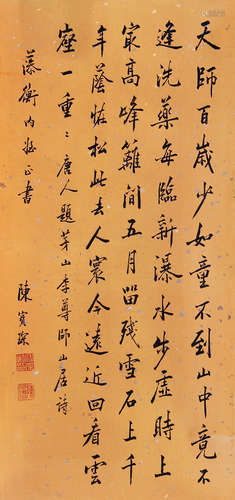 天師百歲少如童不到山中竟不
逢洗藥每臨新瀑水步虛時上
最高峰籬間五月留殘雪石上千
年蔭怪松此去人寰今遠近回看雲
壑一重〻唐人題茅山李尊師山居詩
慕衡內姪正書
陳寶琛